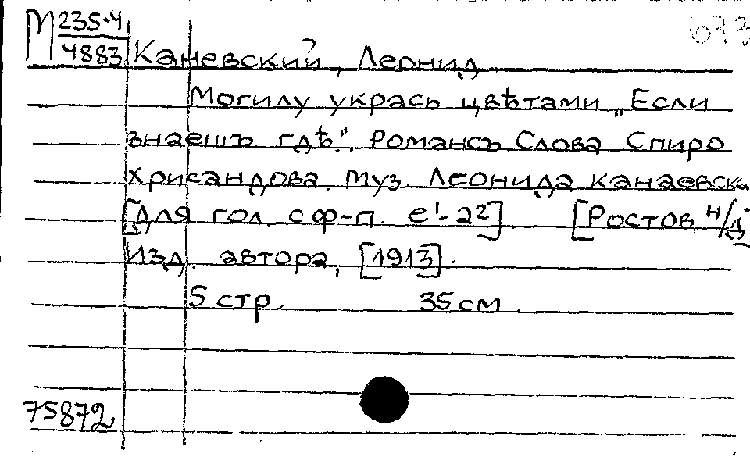 М 235-4
4883
673
Каневский, Леонид
Могилу укрась цвѣтами „Если
знаешь гдѣ". Романсъ Слова Спиро
Хрисандова. Муз. Леонида Канаевск
[Для гол. с ф-п. e¹-a²] [Ростов н/Д
Изд. автора, [1913].
5 стр. 35 см
75872